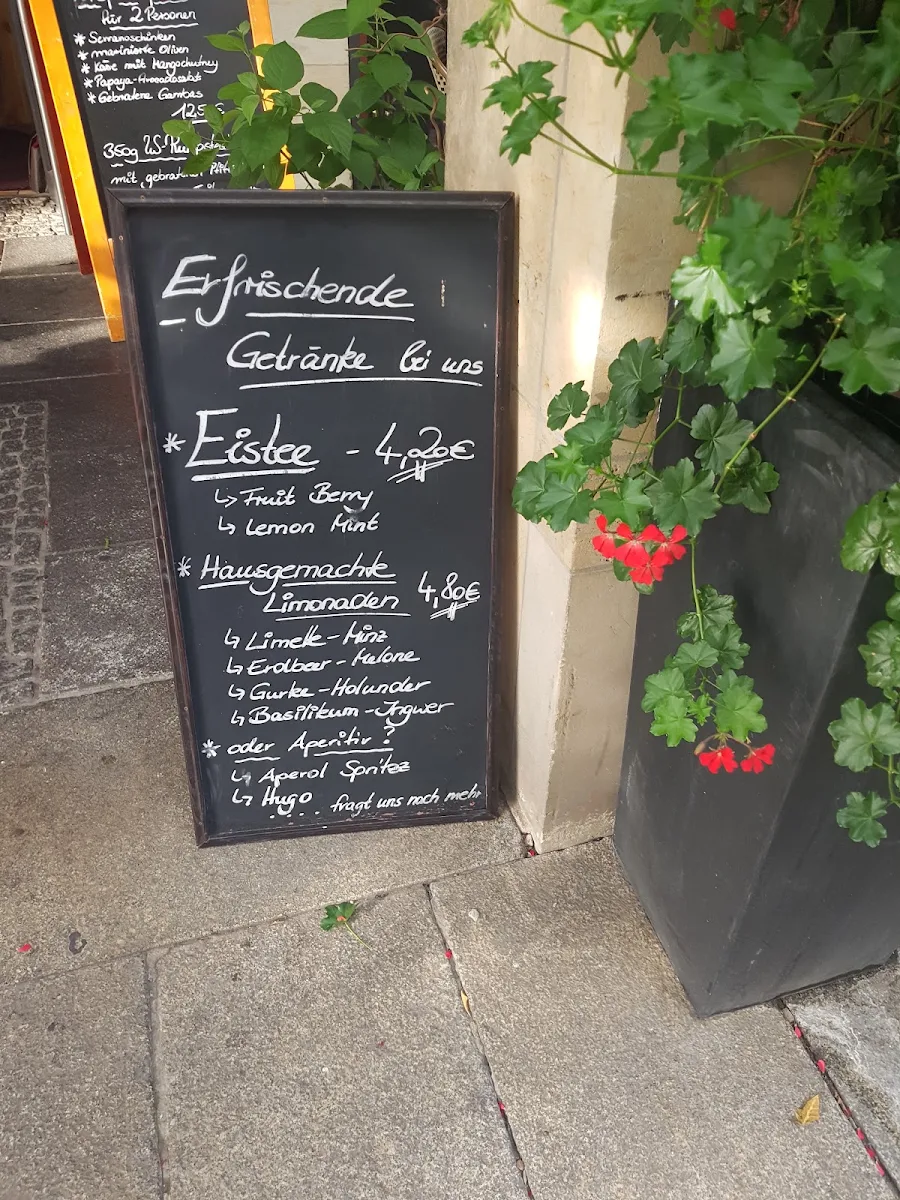 für 2 Personen
* Serranoschinken
* marinierte Oliven
* Käse mit Mangochutney
* Papaya-Avocadosalat
* Gebratene Gambas
12,5
350g US-
mit gebratenen
Erfrischende
Getränke bei uns
* Eistee - 4,20€
↳ Fruit Berry
↳ Lemon Mint
* Hausgemachte
Limonaden 4,80€
↳ Limette-Minz
↳ Erdbeer-Melone
↳ Gurke-Holunder
↳ Basilikum-Ingwer
* oder Aperitir?
↳ Aperol Spritez
↳ Hugo
.... fragt uns noch mehr